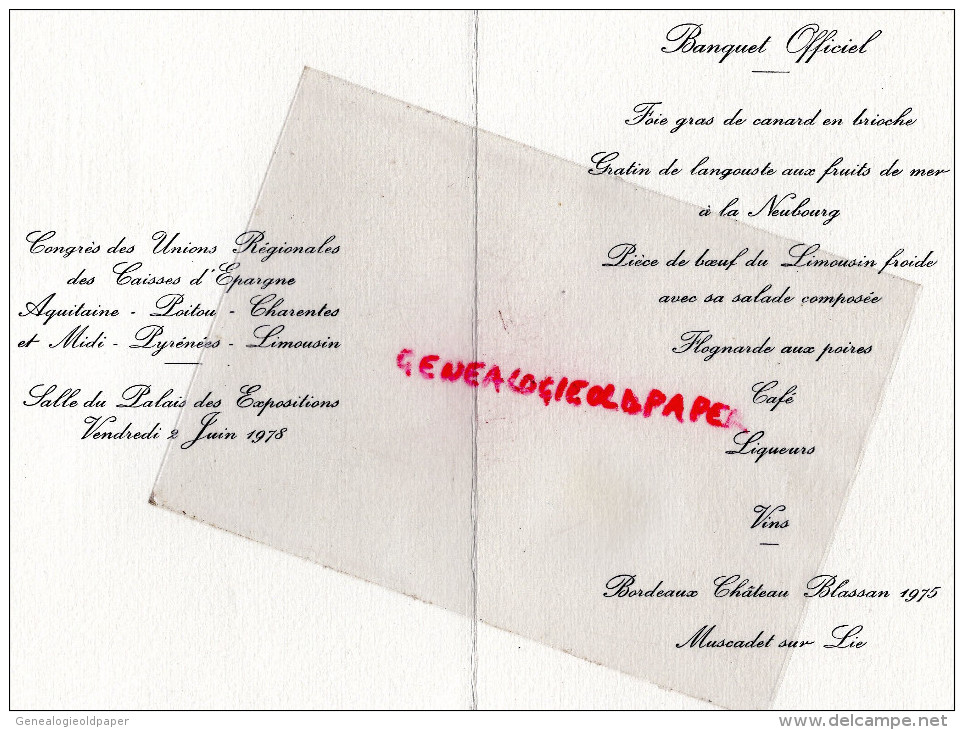 Congrès des Unions Régionales
des Caisses d'Epargne
Aquitaine - Poitou - Charentes
et Midi - Pyrénées - Limousin
Salle du Palais des Expositions
Vendredi 2 Juin 1978
Banquet Officiel
Foie gras de canard en brioche
Gratin de langouste aux fruits de mer
à la Neubourg
Pièce de bœuf du Limousin froide
avec sa salade composée
Flognarde aux poires
Café
Liqueurs
Vins
Bordeaux Château Blassan 1975
Muscadet sur Lie
GENEALOGIEOLDPAPER
Genealogieoldpaper
www.delcampe.net